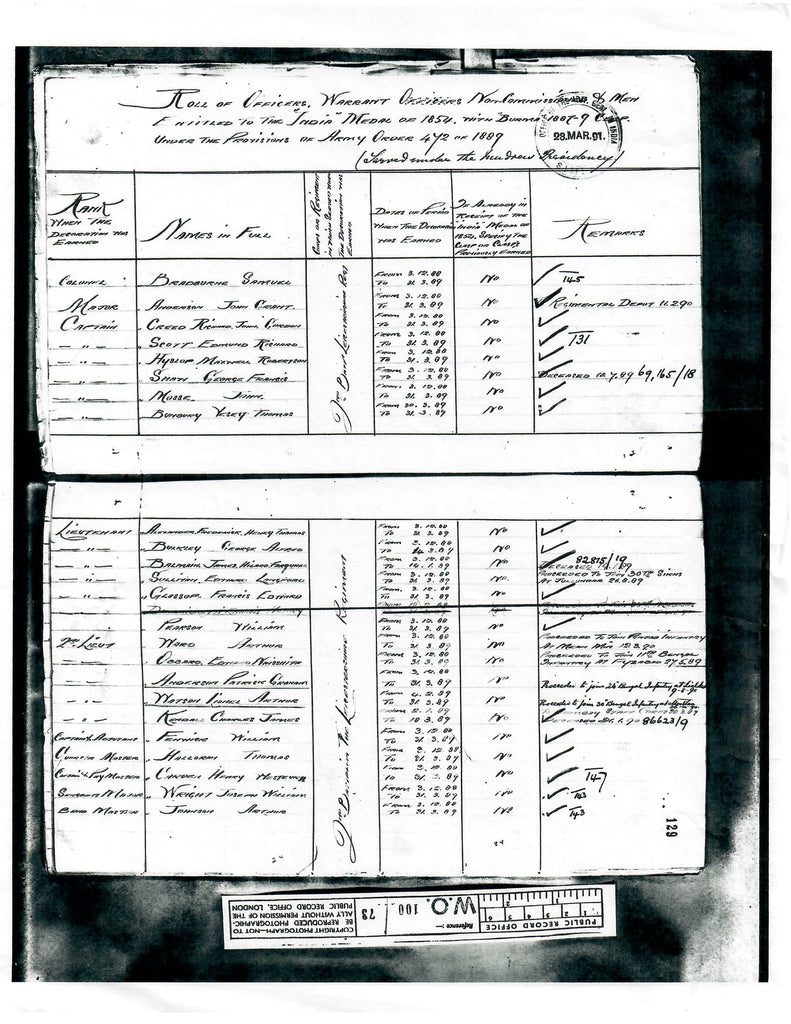 Roll of Officers, Warrant Officers Non-Commissioned & Men
Entitled to the "India" Medal of 1854, with "Burma 1887-9 Clasp
under the Provisions of Army Order 4y2 of 1889
(Served under the Madras Presidency)
28.MAR.91.
Rank When the Decoration was Earned
Names in Full
Corps or Regiment in which Served when the Decoration was Earned
Dates or Period When the Decoration was Earned
If Already in Receipt of the "India" Medal of 1854, Specify the Clasp or Clasps Previously Earned
Remarks
Colonel Bradburne Samuel From 3.12.88 To 31.3.89 No 145
Major Anderson John Grant. From 3.12.88 To 31.3.89 No Regimental Depot 11.2.90
Captain Creed Richard John From 3.12.88 To 31.3.89 No
" Scott Edmund Richard From 3.12.88 To 31.3.89 No 131
" Hyslop Maxwell Robertson From 3.12.88 To 31.3.89 No
" Shaw George Francis From 3.12.88 To 31.3.89 No Deceased 12.7.89 69,165/18
" John From 3.12.88 To 31.3.89 No
" Bunbury Vesey Thomas To 31.3.89 No
2nd Battn
Lieutenant Alexander Frederick Henry Thomas From 3.12.88 To 31.3.89 No
" Bulkley George Alfred From 3.12.88 No
" Balmain James From 3.12.88 To 14.1.89 No 82815/19
" Sullivan Edward From 3.12.88 To 31.3.89 No Proceeded to Join 30th Sikhs
" Glossop Francis Edward From 3.12.88 To 31.3.89 No
Pearson William From 3.12.88 To 31.3.89 No
2nd Lieut Ward Arthur From 3.12.88 To 31.3.89 No Proceeded to Join Punjab Infantry
" From 3.12.88 To 31.3.89 No Proceeded to Join 11th Bengal Infantry at Fyzabad 27.5.89
Anderson Patrick Graham From 3.12.88 To 31.3.89 No
" Watson Lionel Arthur To 31.3.89 No
" Kendall Charles James No 86623/9
Captain & Adjutant Fenwick William From 3.12.88 To 31.3.89 No
Quarter Master Halloran Thomas From 3.12.88 To 31.3.89 No
Captain & Pay Master Henry From 3.12.88 To 31.3.89 No 147
Sergeant Major Wright Joseph William From 3.12.88 To 31.3.89 No 143
Band Master Johnson Arthur From 3.12.88 To 31.3.89 No 143
2nd Battalion The Leicestershire Regiment
129
PUBLIC RECORD OFFICE
Reference :-
W.O. 100 / 73
COPYRIGHT PHOTOGRAPH—NOT TO
BE REPRODUCED PHOTOGRAPHIC-
ALLY WITHOUT PERMISSION OF THE
PUBLIC RECORD OFFICE, LONDON